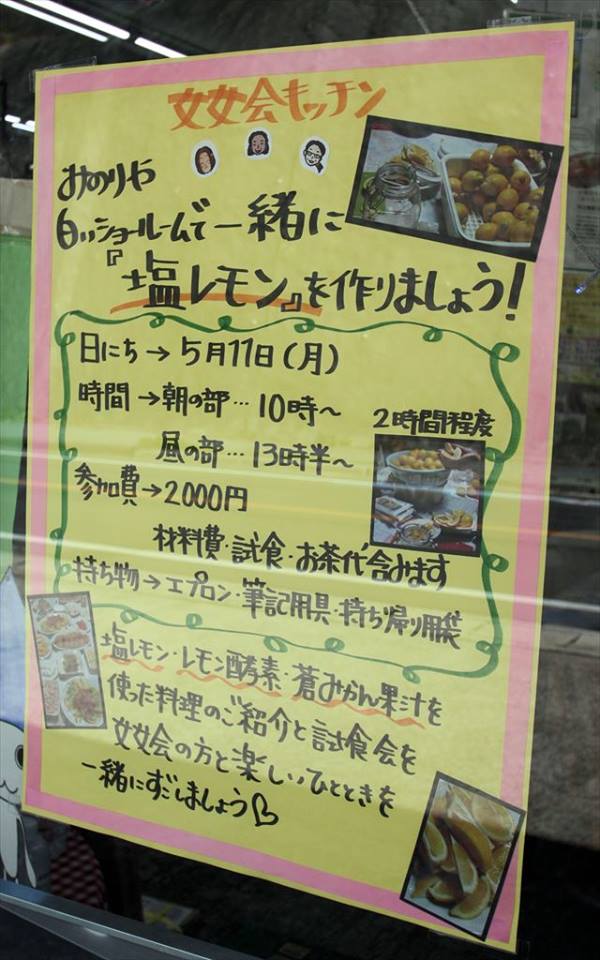 女女会キッチン
みのりや
白いショールームで一緒に
『塩レモン』を作りましょう!
日にち→5月11日(月)
時間→朝の部…10時～
2時間程度
昼の部…13時半～
参加費→2000円
材料費・試食・お茶代含みます
持ち物→エプロン・筆記用具・持ち帰り用袋
塩レモン・レモン酵素・蒼みかん果汁を
使った料理のご紹介と試食会を
女女会の方と楽しいひとときを
一緒にすごしましょう♡